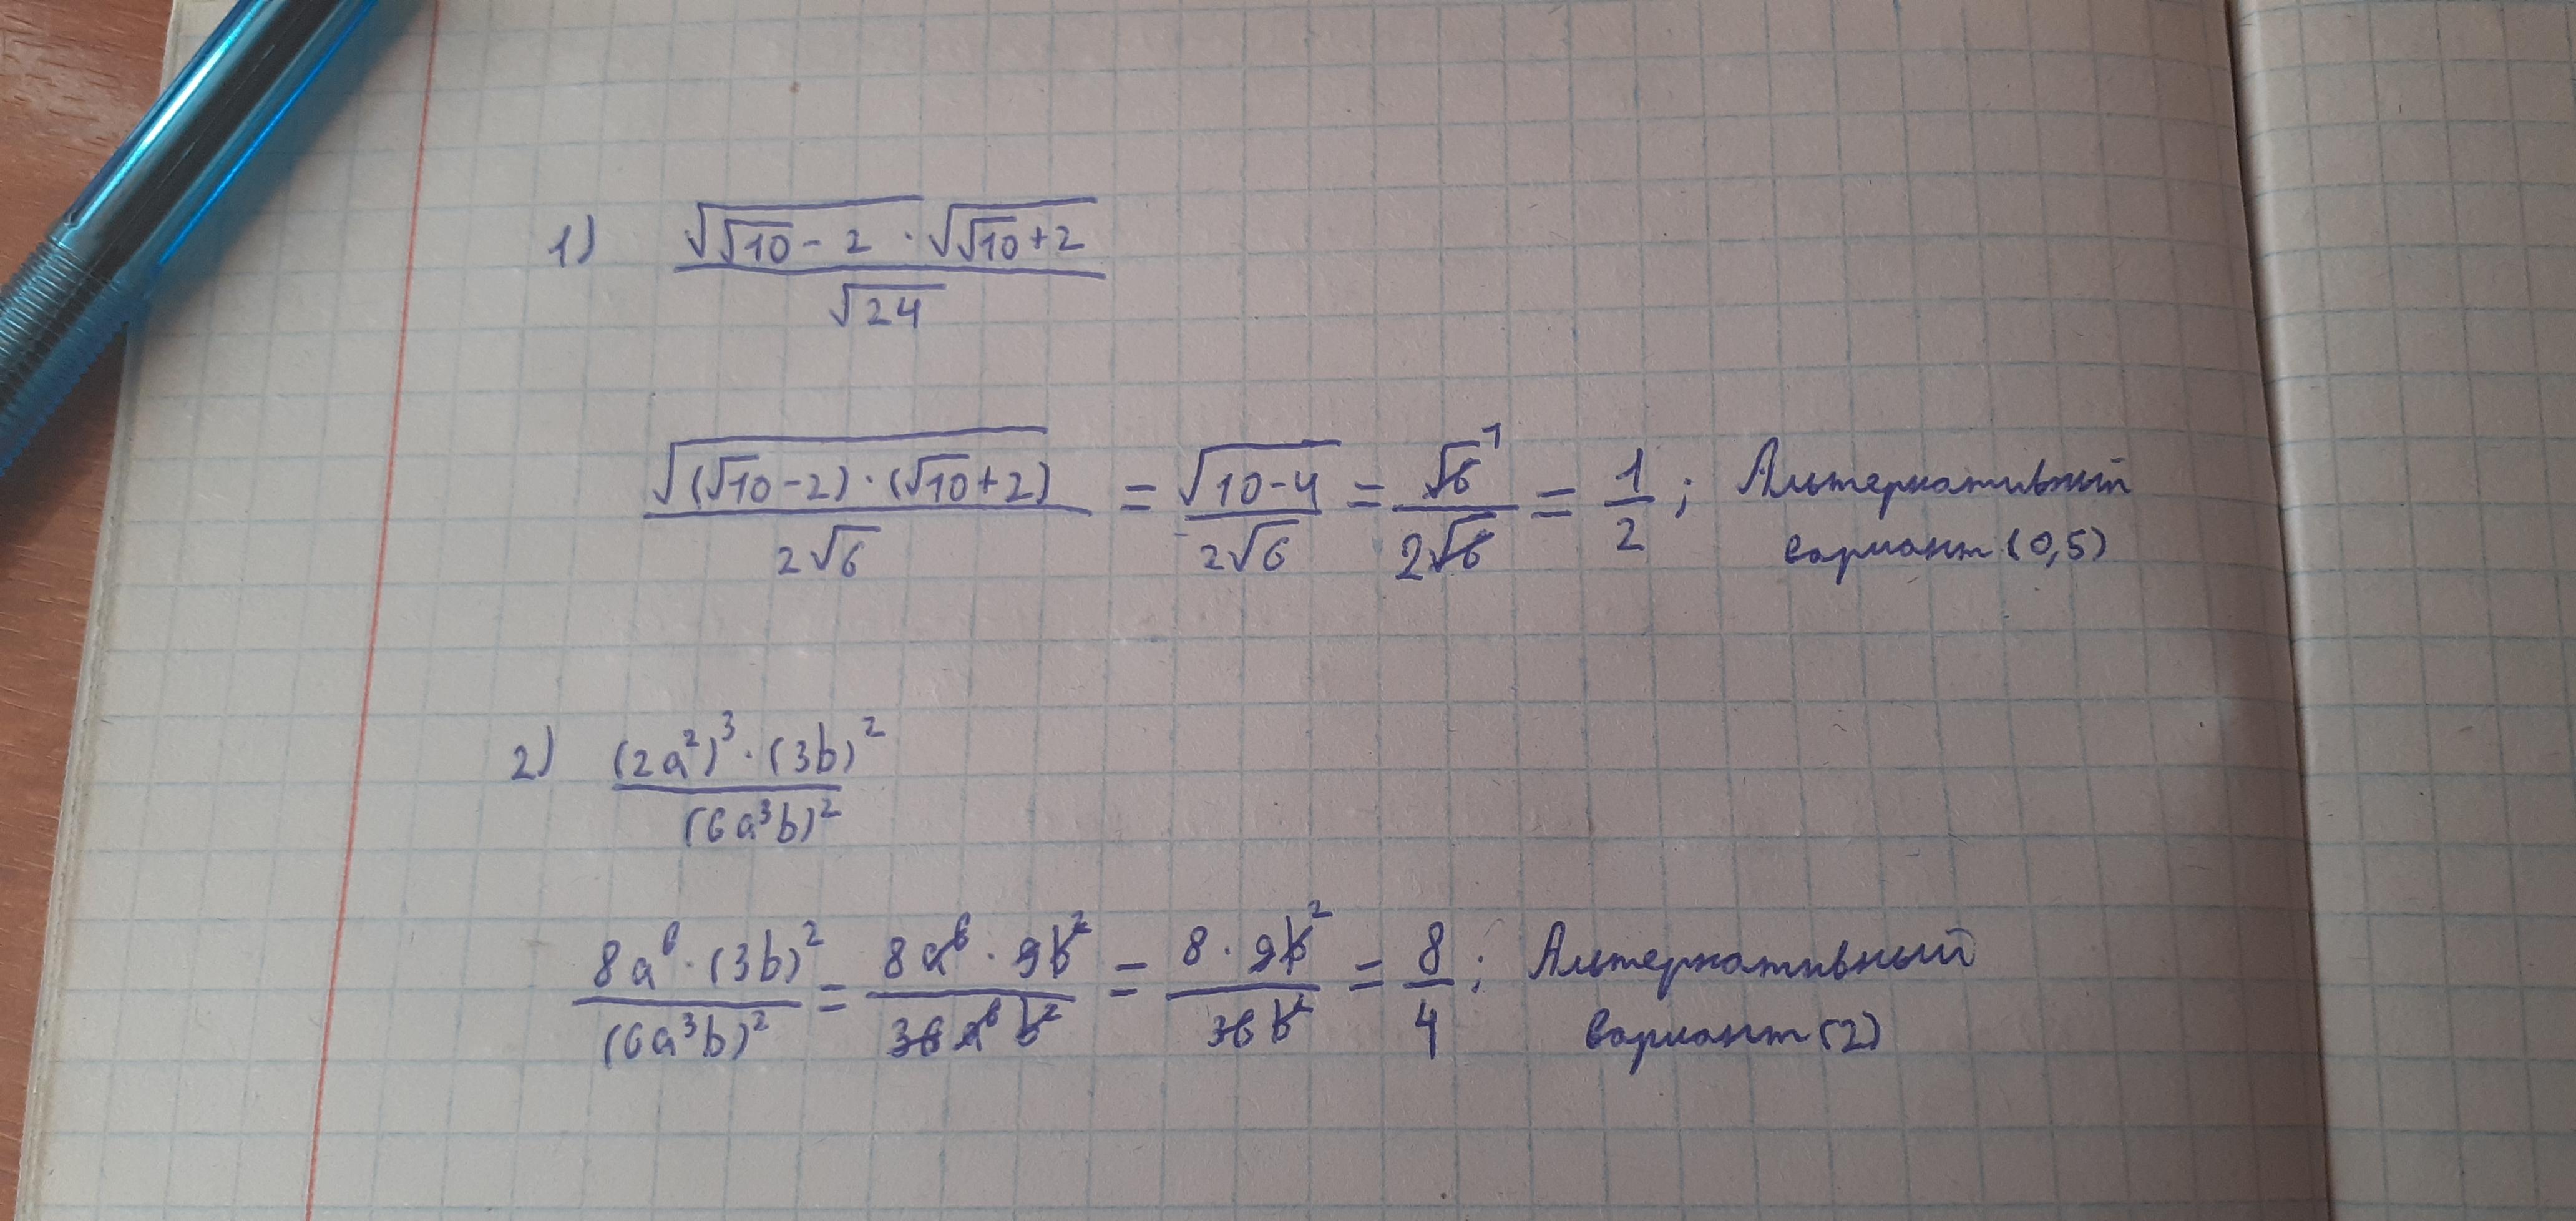 1) √(√10 - 2) · √(√10 + 2) / √24
√((√10 - 2) · (√10 + 2)) / 2√6 = √(10 - 4) / 2√6 = √6¹ / 2√6 = 1/2 ; Альтернативный
вариант (0,5)
2) (2a²)³ · (3b)² / (6a³b)²
8a⁶ · (3b)² / (6a³b)² = 8a⁶ · 9b² / 36a⁶b² = 8 · 9b² / 36b² = 8/4 ; Альтернативный
вариант (2)